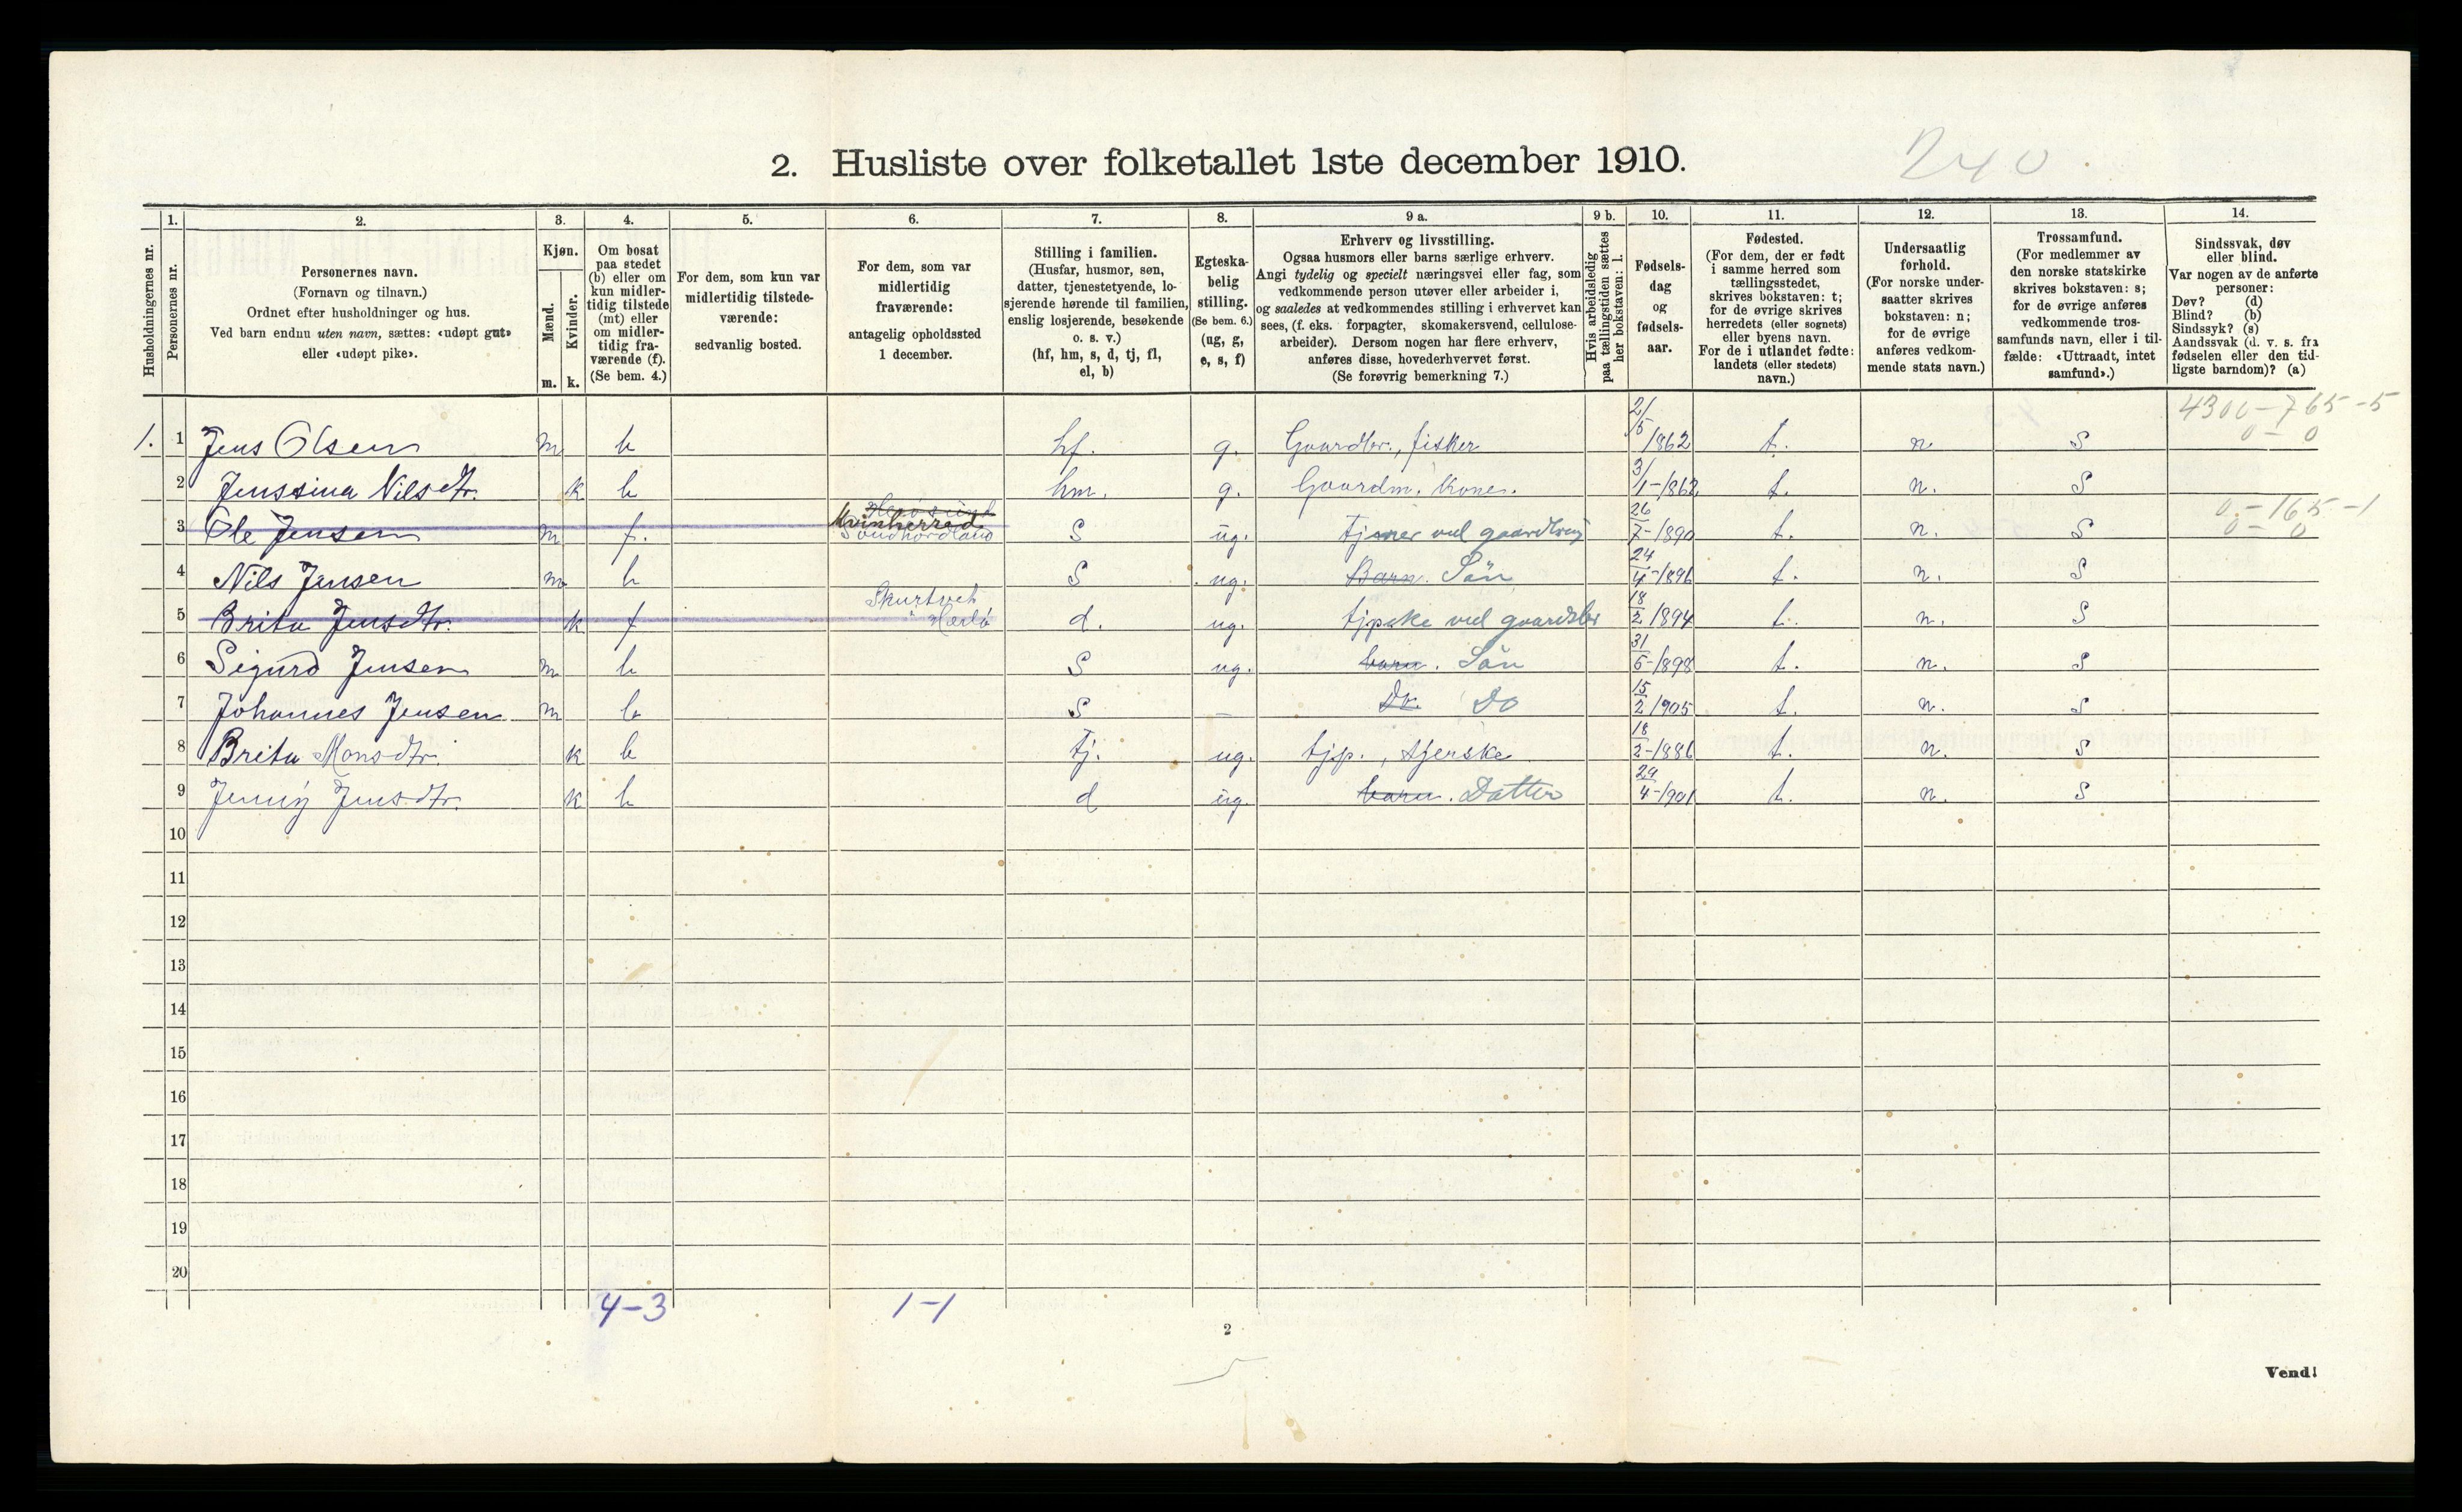 240
2. Husliste over folketallet 1ste december 1910.
Husholdningernes nr.
1. Personernes nr.
2. Personernes navn. (Fornavn og tilnavn.) Ordnet efter husholdninger og hus. Ved barn endnu uten navn, sættes: «udøpt gut» eller «udøpt pike».
3. Kjøn. Mænd. m. Kvinder. k.
4. Om bosat paa stedet (b) eller om kun midlertidig tilstede (mt) eller om midlertidig fraværende (f). (Se bem. 4.)
5. For dem, som kun var midlertidig tilstedeværende: sedvanlig bosted.
6. For dem, som var midlertidig fraværende: antagelig opholdssted 1 december.
7. Stilling i familien. (Husfar, husmor, søn, datter, tjenestetyende, losjerende hørende til familien, enslig losjerende, besøkende o. s. v.) (hf, hm, s, d, tj, fl, el, b)
8. Egteskabelig stilling. (Se bem. 6.) (ug, g, e, s, f)
9 a. Erhverv og livsstilling. Ogsaa husmors eller barns særlige erhverv. Angi tydelig og specielt næringsvei eller fag, som vedkommende person utøver eller arbeider i, og saaledes at vedkommendes stilling i erhvervet kan sees, (f. eks. forpagter, skomakersvend, cellulosearbeider). Dersom nogen har flere erhverv, anføres disse, hovederhvervet først. (Se forøvrig bemerkning 7.)
9 b. Hvis arbeidsledig paa tællingstiden sættes her bokstaven: l.
10. Fødselsdag og fødselsaar.
11. Fødested. (For dem, der er født i samme herred som tællingsstedet, skrives bokstaven: t; for de øvrige skrives herredets (eller sognets) eller byens navn. For de i utlandet fødte: landets (eller stedets) navn.)
12. Undersaatlig forhold. (For norske undersaatter skrives bokstaven: n; for de øvrige anføres vedkommende stats navn.)
13. Trossamfund. (For medlemmer av den norske statskirke skrives bokstaven: s; for de øvrige anføres vedkommende trossamfunds navn, eller i tilfælde: «Uttraadt, intet samfund».)
14. Sindssvak, døv eller blind. Var nogen av de anførte personer: Døv? (d) Blind? (b) Sindssyk? (s) Aandssvak (d. v. s. fra fødselen eller den tidligste barndom)? (a)
1. 1 Jens Olsen m b hf. g. Gaardbr., fisker 2/5 1862 t. n S 4300-765-5 0-0
2 Jenssina Nilsdtr. k b hm. g. Gaardm. kone. 3/1-1862 t. n. S
3 Ole Jensen m f. Herøsund Kvinherred Søndhordland S ug. tjener ved gaardbrug 26/7-1890 t. n. S 0-165-1 0-0
4 Nils Jensen m b S ug. Barn. Sön 24/4-1896 t. n. S
5 Brita Jensdtr. k f Skurtvet Herlø d. ug. tjpike ved gaardsbr 18/2 1894 t. n. S
6 Sigurd Jensen m b S ug. barn. Sön 31/5-1898 t. n. S
7 Johannes Jensen m b S - Do. Do 15/2 1905 t. n. S
8 Brita Monsdtr. k b tj. ug. tjp., tjerske 18/2-1886 t. n. S
9 Jenny Jensdtr. k b d ug. barn. Datter 29/4-1901 t. n. S
10
11
12
13
14
15
16
17
18
19
20
4-3 1-1
2
Vend!